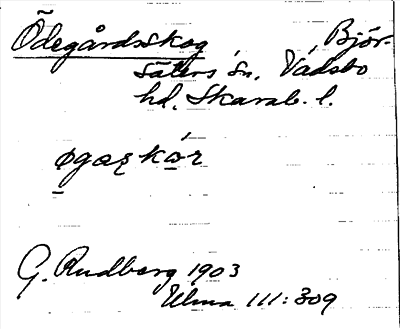 Ödegårdsskog Björ-
säters sn, Vadsbo
hd, Skarab. l.
øgaʐkór
G. Rudberg 1903
Ulma 111:309